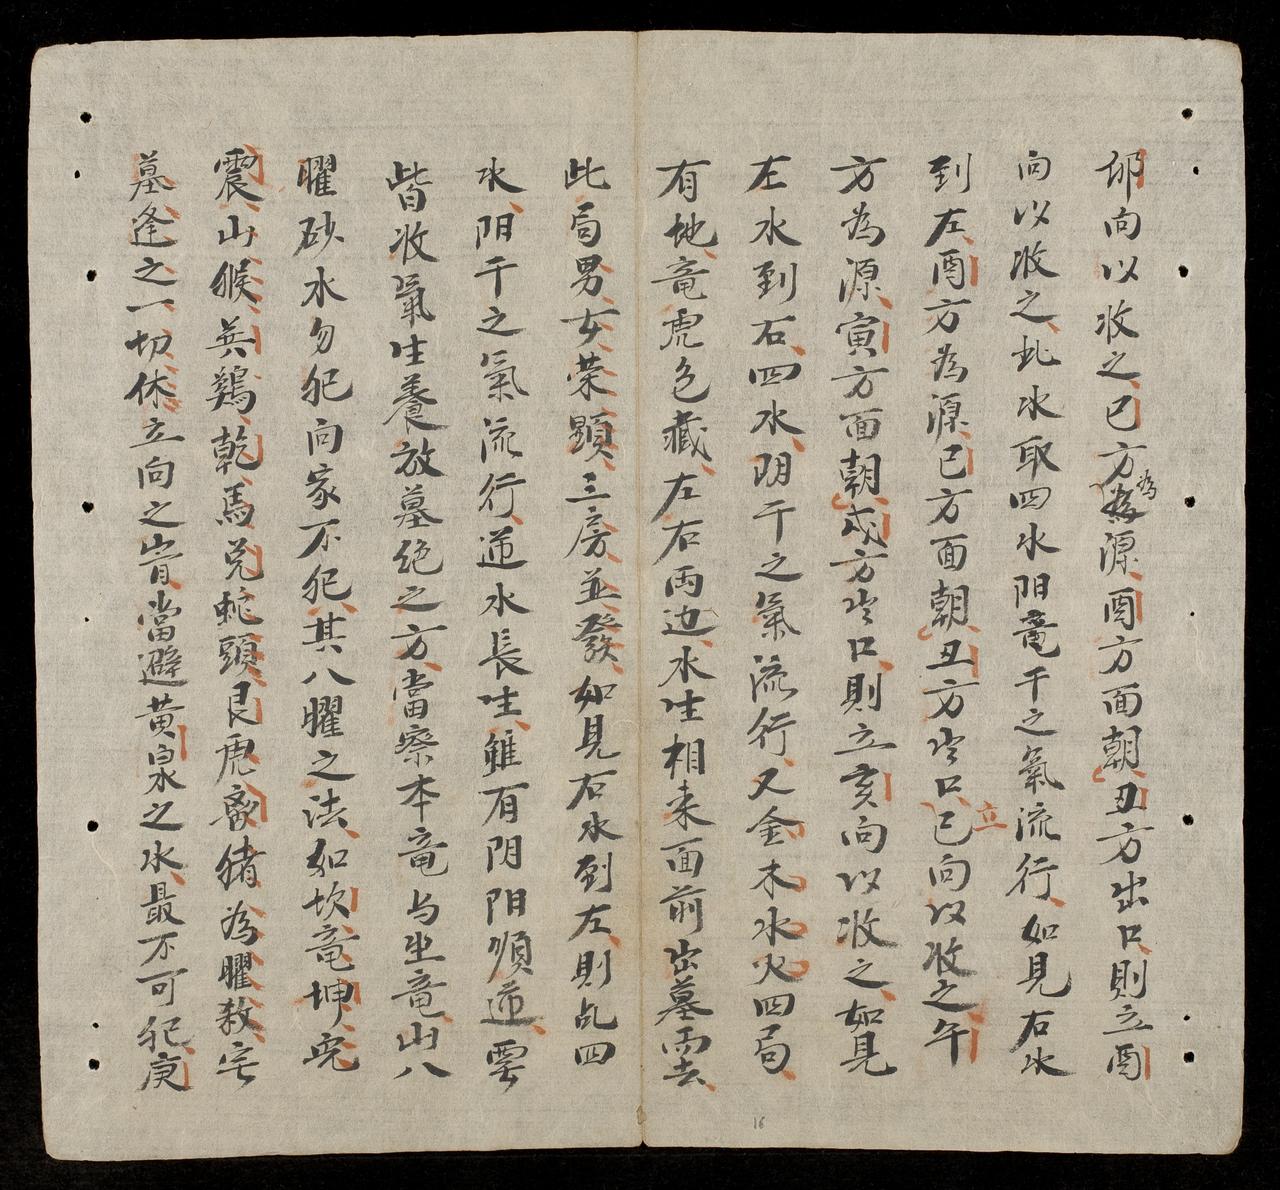 卯向以收之巳方為源酉方面朝丑方出口則立酉
向以收之此水取四水阳竜干之氣流行如見右水
到左酉方為源巳方面朝丑方出口立巳向以收之午
方為源寅方面朝戌方出口則立亥向以收之如見
左水到右四水阴干之氣流行又金木水火四局
有地竜虎包藏左右両边水生相来面前出墓雲去
此局男女荣顕三房並發如見右水到左則乩四
水阴干之氣流行逆水長生雖有阴阳順逆要
皆收氣生養放墓绝之方當察本竜与坐竜山八
曜砂水勿犯向家不犯其八曜之法如坎竜坤兎
震山猴巽鷄乾馬兌蛇頭艮虎离猪為曜殺宅
墓逢之一切休立向之皆當避黄泉之水最不可犯庚
16